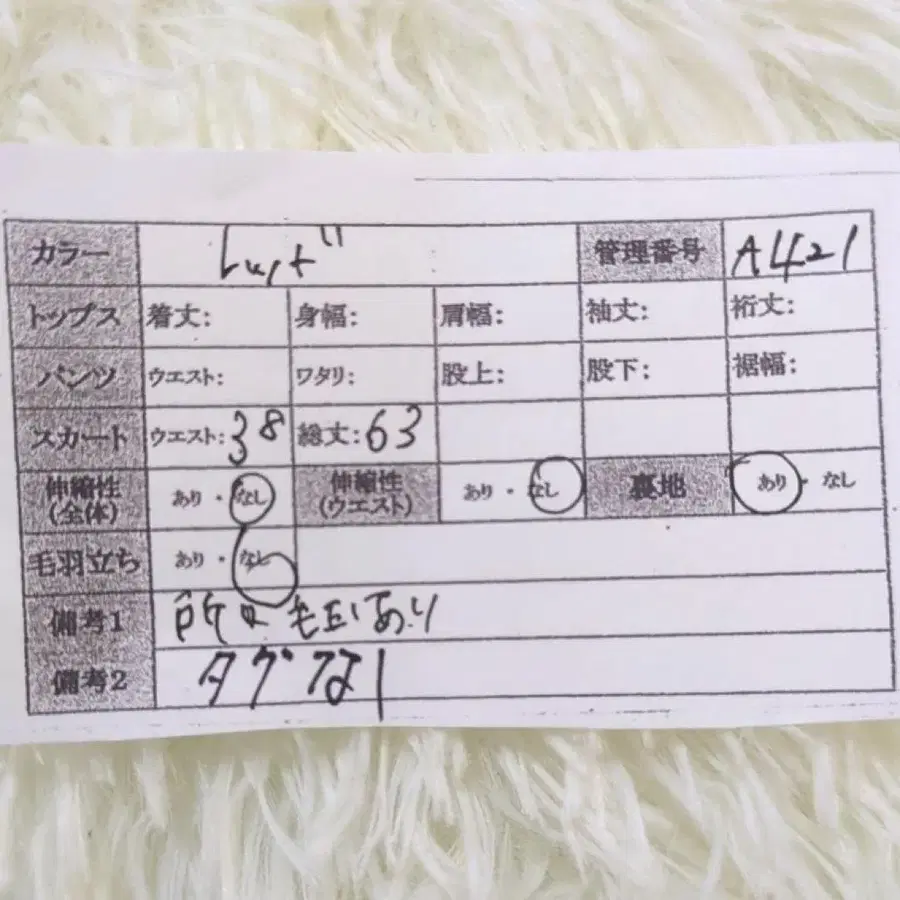 カラー 管理番号 A421
トップス 着丈: 身幅: 肩幅: 袖丈: 裄丈:
パンツ ウエスト: ワタリ: 股上: 股下: 裾幅:
スカート ウエスト: 38 総丈: 63
伸縮性(全体) あり・なし 伸縮性(ウエスト) あり・なし 裏地 あり・なし
毛羽立ち あり・なし
備考1 所々 毛玉あり
備考2 タグなし